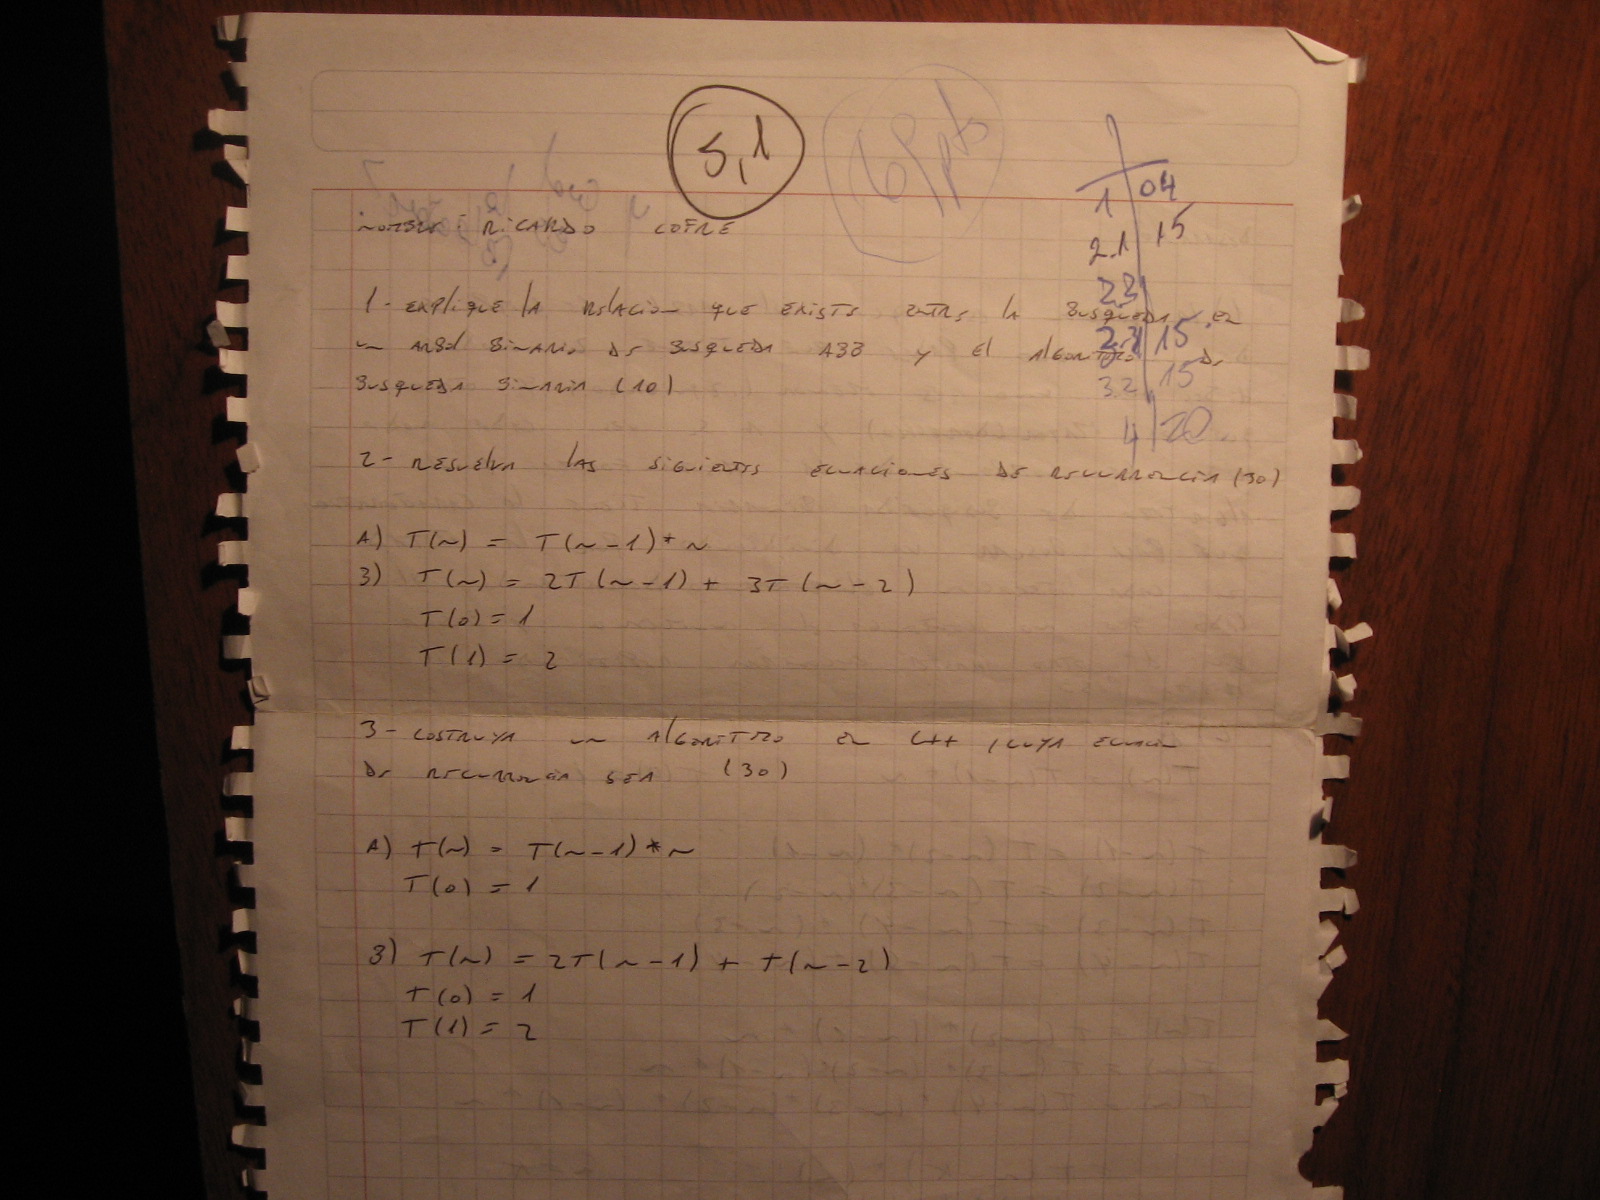 5,1
69 pts
1 04
2.1 15
2.3
15
3.2 15
4 20
NOMBRE: RICARDO COFRE
1- EXPLIQUE LA RELACION QUE EXISTE ENTRE LA BUSQUEDA EN
UN ARBOL BINARIO DE BUSQUEDA ABB Y EL ALGORITMO DE
BUSQUEDA BINARIA (10)
2- RESUELVA LAS SIGUIENTES ECUACIONES DE RECURRENCIA (30)
A) T(n) = T(n-1)* n
B) T(n) = 2T(n-1) + 3T(n-2)
T(0) = 1
T(1) = 2
3- COSTRUYA UN ALGORITMO EN C++ CUYA
DE RECURRENCIA SEA (30)
A) T(n) = T(n-1) * n
T(0) = 1
B) T(n) = 2T(n-1) + T(n-2)
T(0) = 1
T(1) = 2